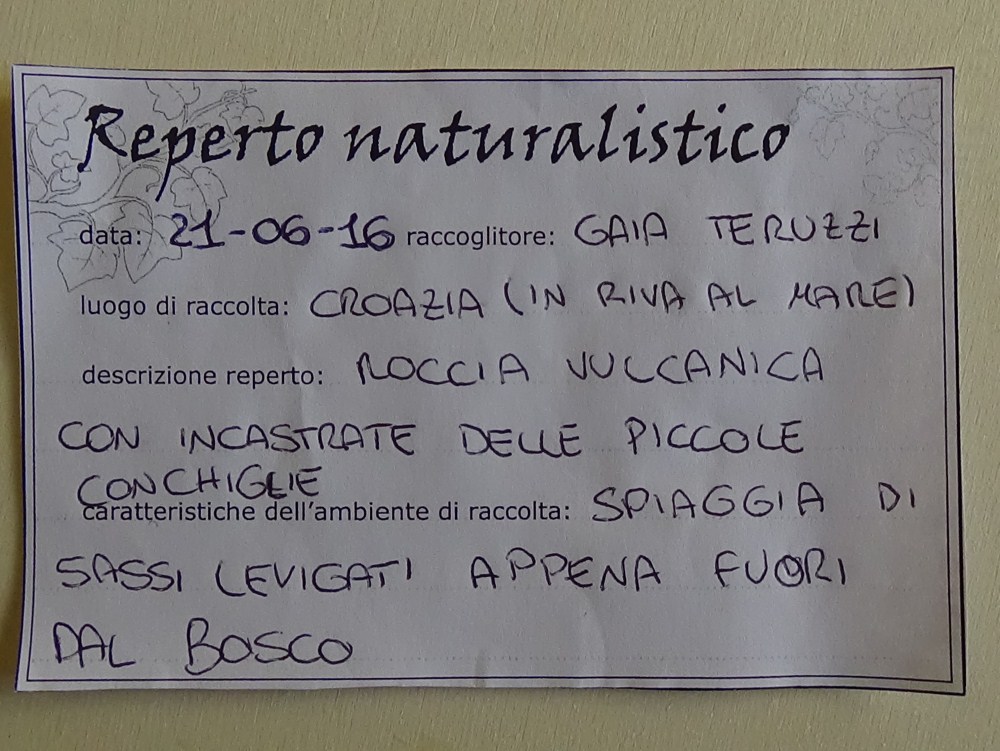 Reperto naturalistico
data: 21-06-16 raccoglitore: GAIA TERUZZI
luogo di raccolta: CROAZIA (IN RIVA AL MARE)
descrizione reperto: ROCCIA VULCANICA
CON INCASTRATE DELLE PICCOLE
CONCHIGLIE
caratteristiche dell'ambiente di raccolta: SPIAGGIA DI
SASSI LEVIGATI APPENA FUORI
DAL BOSCO